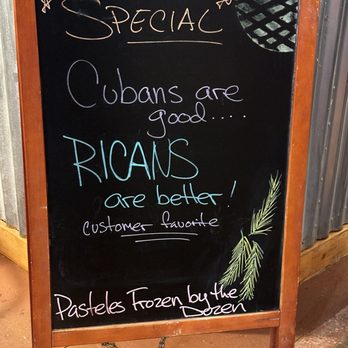 "SPECIAL"
Cubans are
good....
RICANS
are better!
customer favorite
Pasteles Frozen by the
Dozen